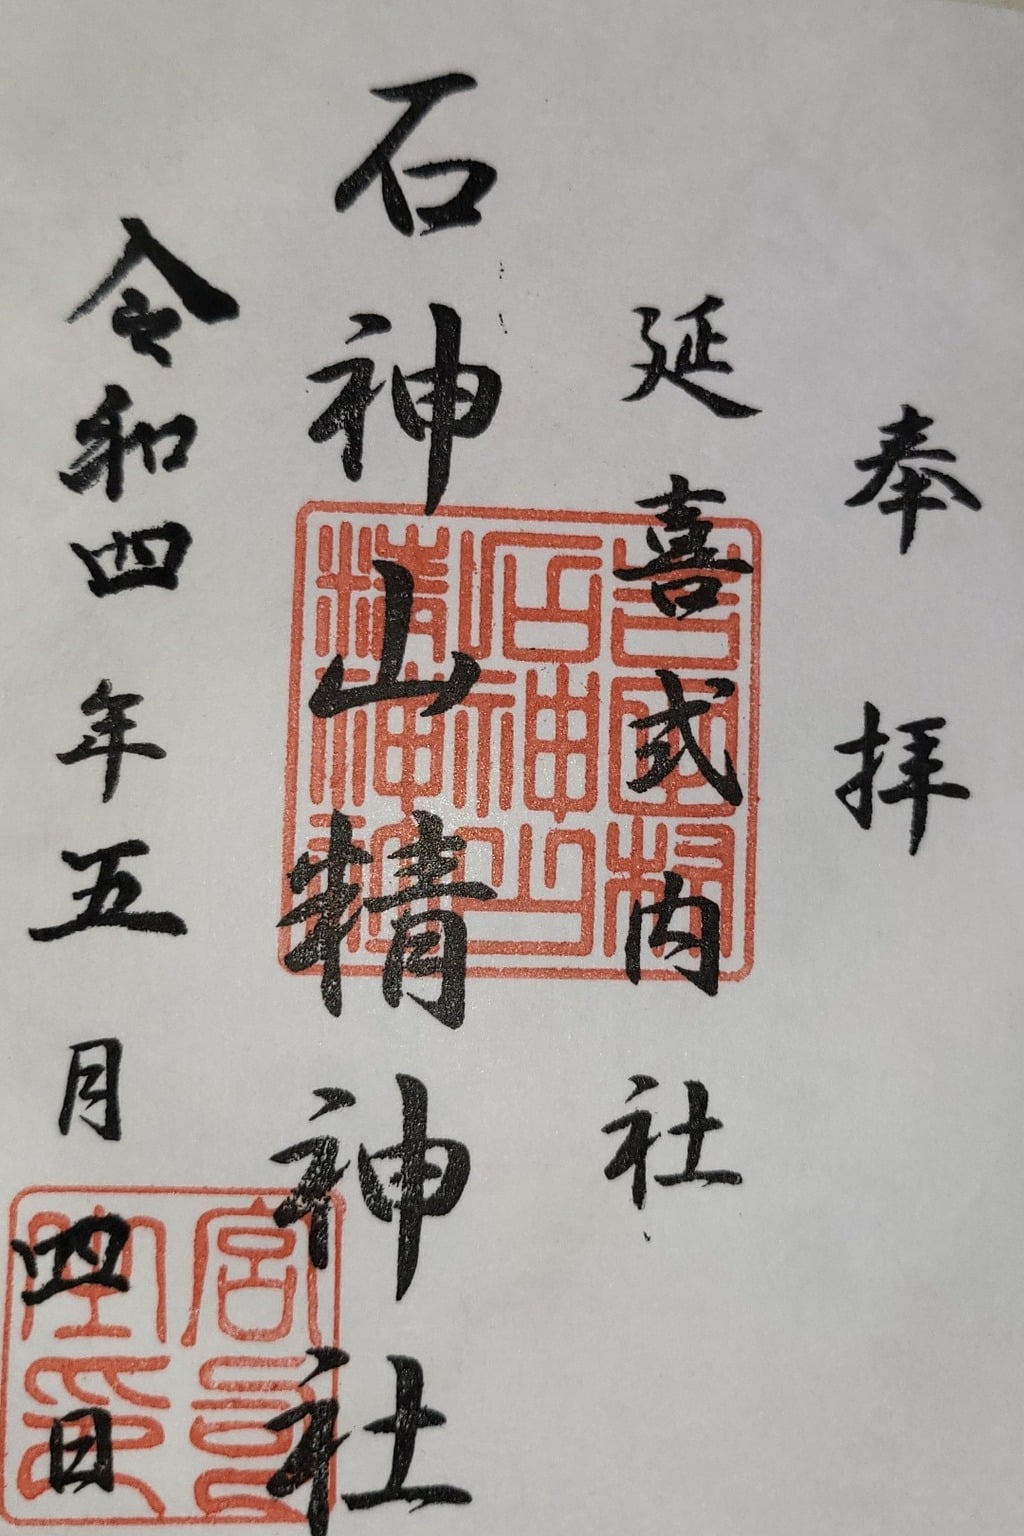 奉拝
延喜式内社
石神山精神社
令和四年五月四日
宮司之印